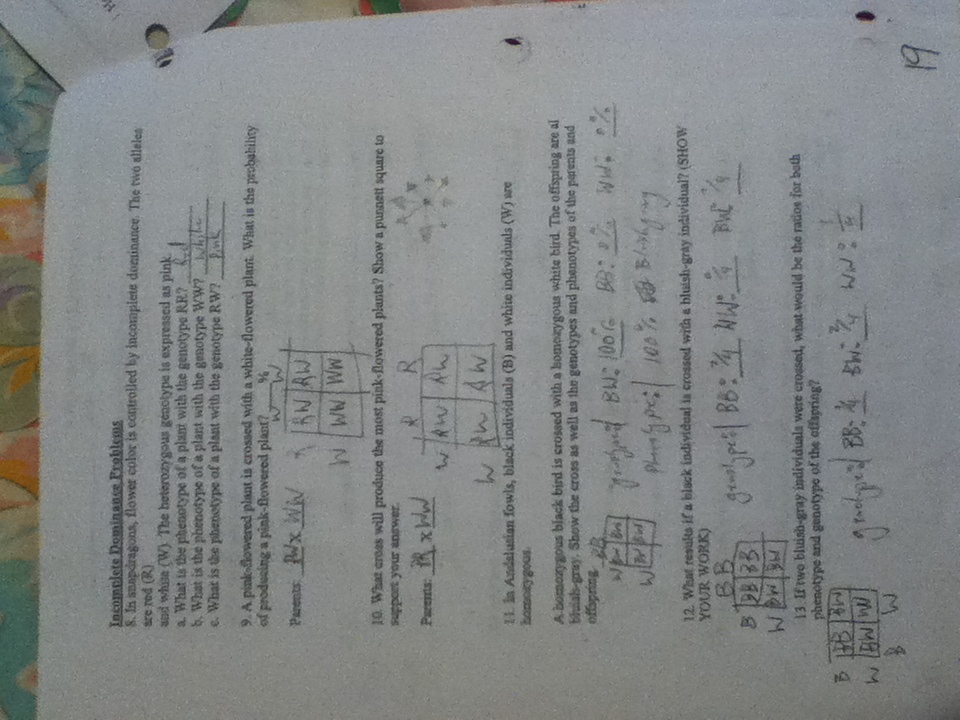 Incomplete Dominance Problems
8. In snapdragons, flower color is controlled by incomplete dominance. The two alleles
are red (R)
and white (W). The heterozygous genotype is expressed as pink.
a. What is the phenotype of a plant with the genotype RR? Red
b. What is the phenotype of a plant with the genotype WW? White
c. What is the phenotype of a plant with the genotype RW? Pink
9. A pink-flowered plant is crossed with a white-flowered plant. What is the probability
of producing a pink-flowered plant? %
W W
Parents: RW x WW R RW RW
W WW WW
10. What cross will produce the most pink-flowered plants? Show a punnett square to
support your answer.
R R
Parents: RR x WW W RW RW
W RW RW
11. In Andalusian fowls, black individuals (B) and white individuals (W) are
homozygous.
A homozygous black bird is crossed with a homozygous white bird. The offspring are al
bluish-gray. Show the cross as well as the genotypes and phenotypes of the parents and
offspring.
BB
W BW BW genotype: BW: 100% BB: 0% WW: 0%
W BW BW Phenotype: 100% Bluish gray
12. What results if a black individual is crossed with a bluish-gray individual? (SHOW
YOUR WORK)
B B
B BB BB genotype: BB: 2/4 WW: 0/4 BW: 2/4
W BW BW
13. If two bluish-gray individuals were crossed, what would be the ratios for both
phenotype and genotype of the offspring?
B BB BW
W BW WW genotype: BB: 1/4 BW: 2/4 WW: 1/4
B W
19